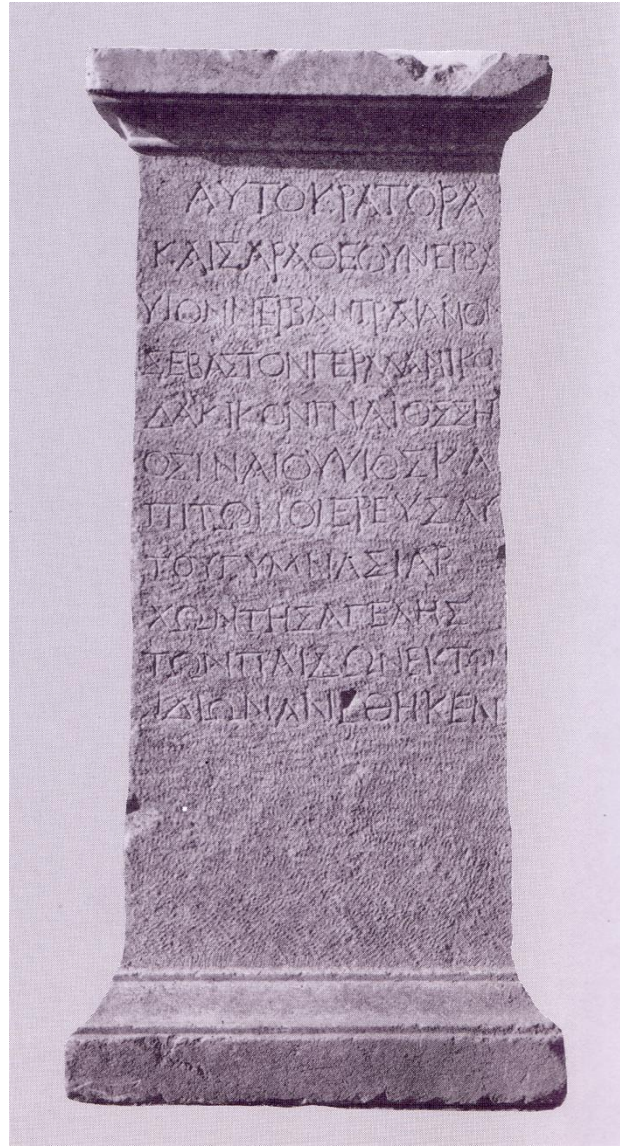 ΑΥΤΟΚΡΑΤΟΡΑ
ΚΑΙΣΑΡΑΘΕΟΥΝΕΡΒΑ
ΥΙΟΝΝΕΡΒΑΝΤΡΑΙΑΝΟΝ
ΣΕΒΑΣΤΟΝΓΕΡΜΑΝΙΚΟ
ΔΑΚΙΚΟΝΓΝΑΙΟΣΣΗ
ΟΣΓΝΑΙΟΥΥΙΟΣΚΑ
ΠΙΤΩΝΟΙΕΡΕΥΣΑΥ
ΤΟΥΓΥΜΝΑΣΙΑΡ
ΧΩΝΤΗΣΑΓΕΛΗΣ
ΤΩΝΠΑΙΔΩΝΕΚΤΩΝ
ΙΔΙΩΝΑΝΕΘΗΚΕΝ